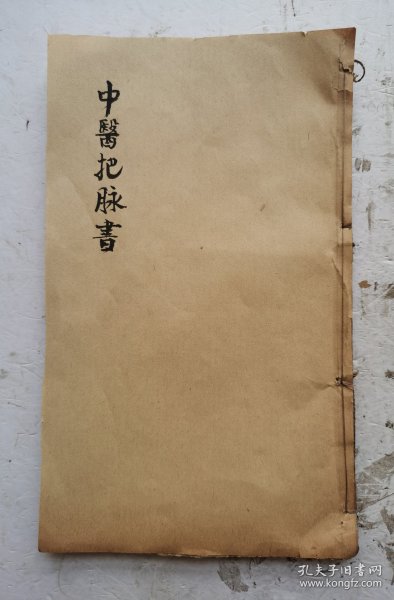 中醫把脉書
孔夫子旧书网
www.kongfz.com